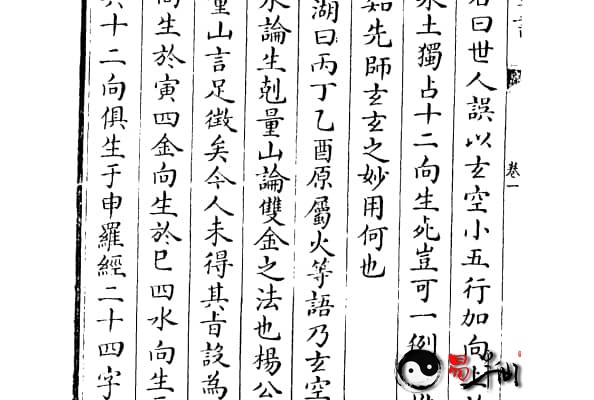 曰世人誤以玄空小五行加向上
水土獨占十二向生死豈可一例
如先師玄玄之妙用何也
湖曰丙丁乙酉原屬火等語乃玄空
水論生剋量山論雙金之法也楊公
量山言足徵矣今人未得其旨設為
向生於寅四金向生於巳四水向生
十二向俱生于申羅經二十四字
卷一
易